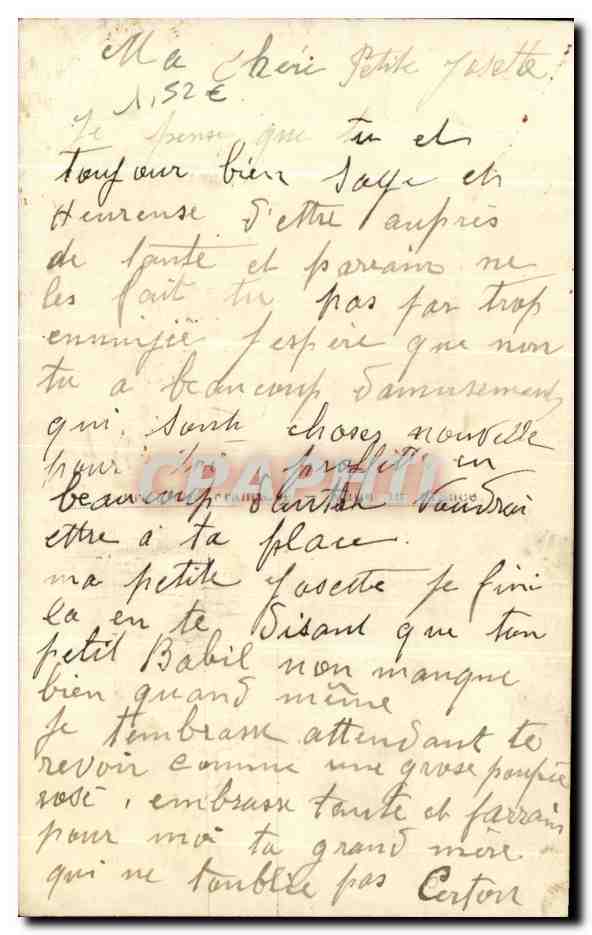 Ma chéri Petite Josette
1,52 €
Je pense que tu et
toujour bien sage et
Heureuse d'ettre auprès
de tante et parrain ne
les fait tu pas par trop
ennuijië j'espère que non
tu a beaucoup d'amusement
qui sonts choses nouvelle
pour toi profite en
beaucoup d'autre voudrai
ettre a ta place.
ma petite Josette je fini
la en te disant que ton
petit Babil non manque
bien quand même
Je t'embrasse attendant te
revoir comme une grose poupée
rose, embrasse tante et parrain
pour moi ta grand mère
qui ne t'oublie pas
CPAPHIL